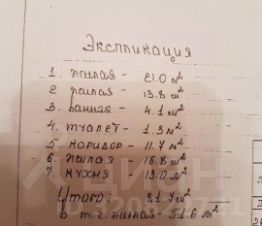 Экспликация
1. жилая - 21.0 м²
2 жилая - 13.8 м²
3. ванная - 4.1 м²
4. туалет - 1.3 м²
5 коридор - 11.7 м²
6. жилая - 16.8 м²
7. кухня - 13.0 м²
Итого: 81.7 м²
в т.ч. жилая - 51.6 м²